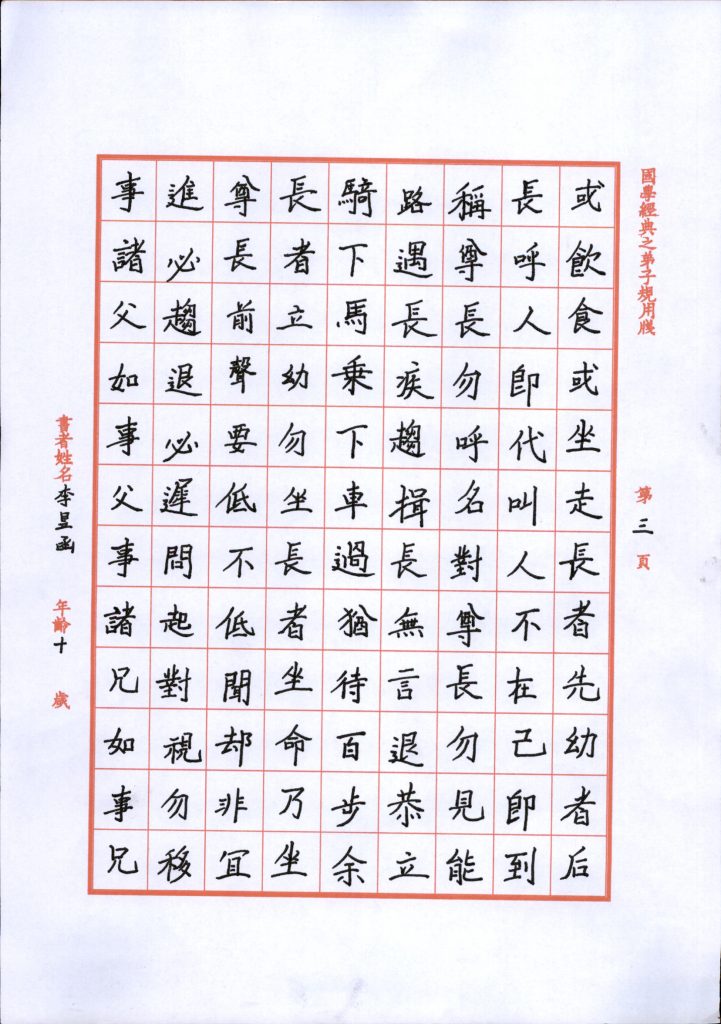 國學經典之弟子規用牋
第三頁
或飲食或坐走長者先幼者后
長呼人即代叫人不在己即到
稱尊長勿呼名對尊長勿見能
路遇長疾趨揖長無言退恭立
騎下馬乗下車過猶待百步余
長者立幼勿坐長者坐命乃坐
尊長前聲要低不低聞却非冝
進必趨退必遲問起對視勿移
事諸父如事父事諸兄如事兄
書者姓名李昱函
年齡十歲